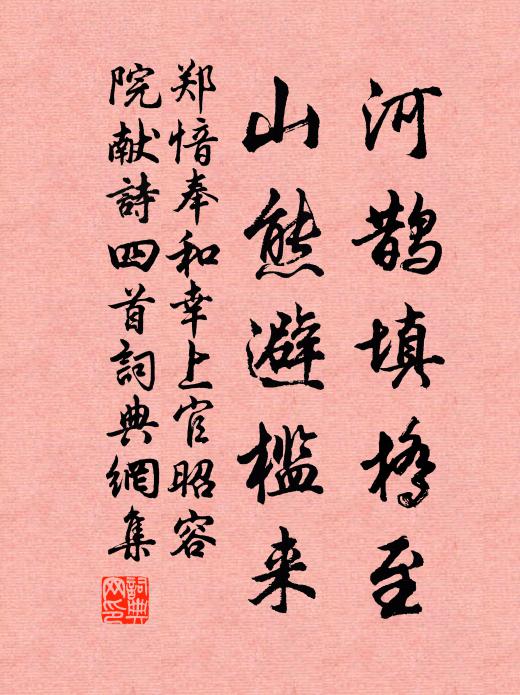 河鹊填桥至
山熊避槛来
郑愔奉和幸上官昭容
院献詩四首詞典網集